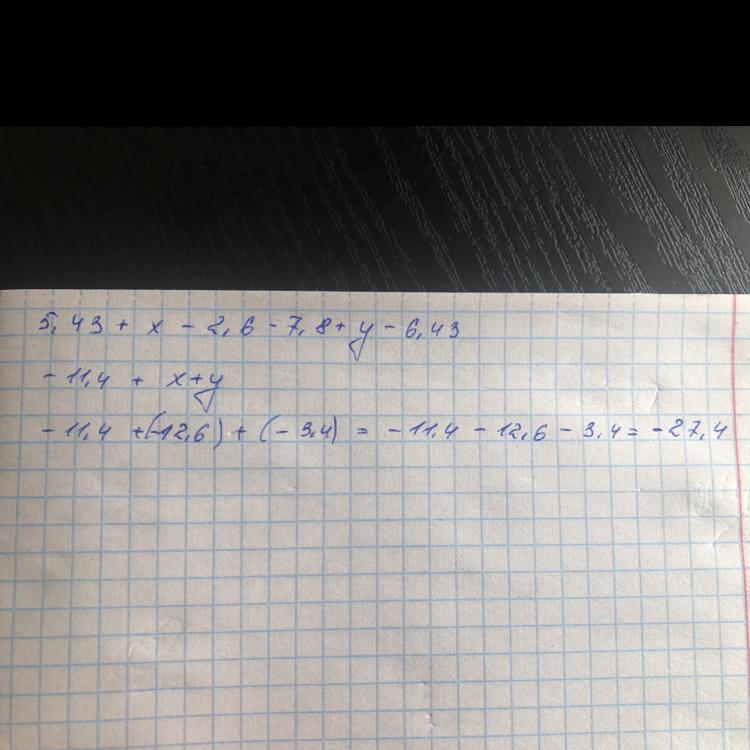 5,43 + x - 2,6 - 7,8 + y - 6,43
- 11,4 + x + y
- 11,4 + (-12,6) + (- 3,4) = - 11,4 - 12,6 - 3,4 = - 27,4